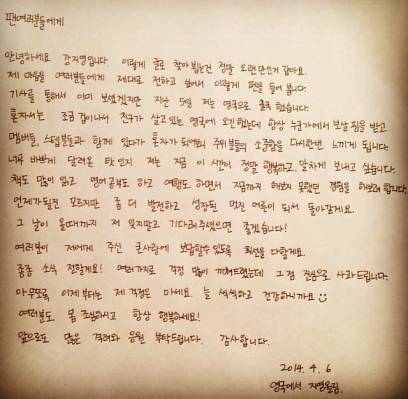 팬여러분들에게
안녕하세요 강지영입니다. 이렇게 글로 찾아뵙는건 정말 오랜만인거 같아요.
제 마음을 여러분들에게 제대로 전하고 싶어서 이렇게 펜을 들어 봅니다.
기사를 통해서 이미 보셨겠지만 지난 5일 저는 영국으로 출국 했습니다.
혼자서는 조금 겁이나서 친구가 살고 있는 영국에 오긴했는데 항상 누군가에서 보살핌을 받고
멤버들, 스탭분들과 함께 있다가 혼자가 되어보니 주위분들의 소중함을 다시한번 느끼게 됩니다.
너무 바쁘게 달려온 탓인지 저는 지금 이 시간이 정말 행복하고, 알차게 보내고 싶습니다.
책도 많이 읽고 영어공부도 하고 여행도 하면서 지금까지 해보지 못했던 경험을 해보려 합니다.
언제가될진 모르지만 좀 더 발전하고 성장된 멋진 어른이 되서 돌아갈게요.
그 날이 올때까지 저 잊지말고 기다려주셨으면 좋겠습니다!
여러분이 저에게 주신 큰사랑에 보답할수 있도록 최선을 다할게요.
종종 소식 전할게요! 여러가지로 걱정 많이 끼쳐드렸는데 그 점 진심으로 사과드립니다.
아무쪼록 이제부터는 제 걱정은 마세요. 늘 씩씩하고 건강하니까요
여러분도 몸 조심하시고 항상 행복하세요!
앞으로도 많은 격려와 응원 부탁드립니다. 감사합니다.
2014. 4. 6
영국에서 지영올림.